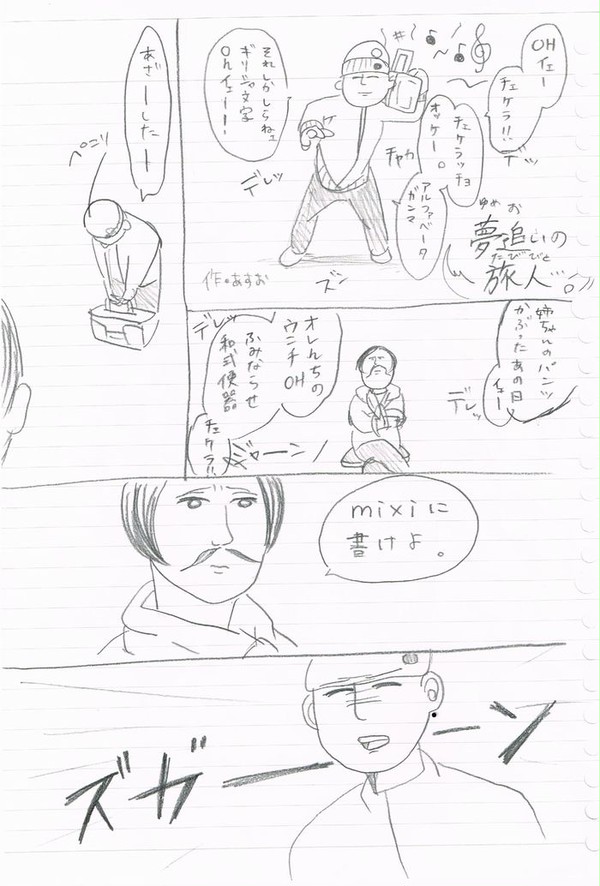 OHイェー
チェケラ!!
チェケラッチョ
オッケー。
アルファベータ
ガンマ
それしかしらねェ
ギリシャ文字
Ohイェー!!!
デレッ
チャカ
デレッ
ズン
ゆめお
夢追いの
たびびと
旅人
作。あすお
姉ちゃんのパンツ
かぶったあの日
イェー
デレッ
オレんちの
ウンチOH
ふみならせ
和式便器
チェケラ!!
デレッ
ジャーン
あざーしたー
ペコリ
mixiに
書けよ。
ズガーーーン